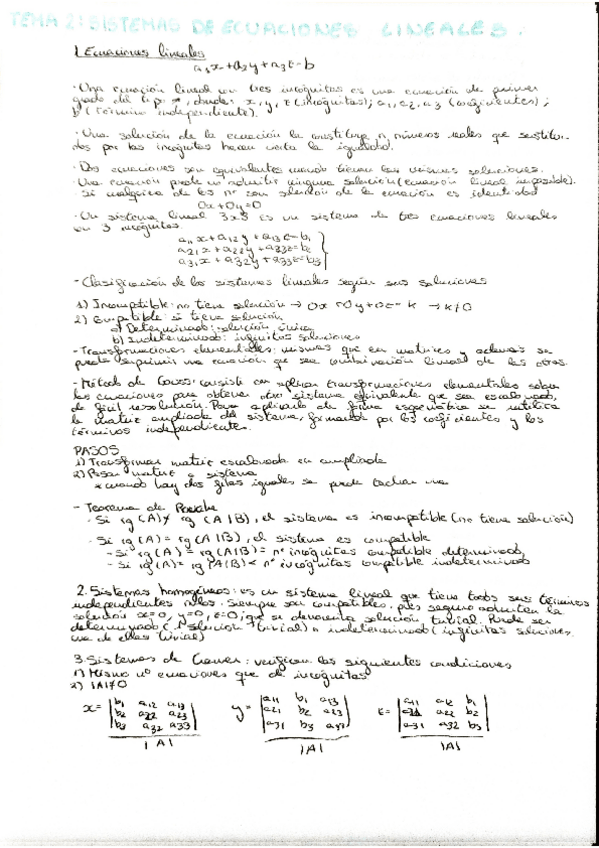 TEMA 2: SISTEMAS DE ECUACIONES LINEALES.
1. Ecuaciones lineales
a₁x+a₂y+a₃z=b
· Una ecuación lineal en tres incógnitas es una ecuación de primer
grado del tipo *, donde: x, y, z (incógnitas); a₁, a₂, a₃ (coeficientes);
b (término independiente).
· Una solución de la ecuación la constituye n números reales que sustitui-
dos por las incógnitas hacen cierta la igualdad.
· Dos ecuaciones son equivalentes cuando tienen las mismas soluciones.
Una ecuación puede no admitir ninguna solución (ecuación lineal imposible).
Si cualquiera de los no son solución de la ecuación es identidad
0x+0y=0
· Un sistema lineal 3x3 es un sistema de tres ecuaciones lineales
en 3 incógnitas.
a₁₁x+a₁₂y+a₁₃z=b₁
a₂₁x+a₂₂y+a₂₃z=b₂
a₃₁x+a₃₂y+a₃₃z=b₃
- Clasificación de los sistemas lineales según sus soluciones
1) Incompatible: no tiene solución → 0x+0y+0z=k → k≠0
2) Compatible: si tiene solución
a) Determinado: solución única
b) Indeterminado: infinitas soluciones
- Transformaciones elementales: mismas que en matrices y además se
puede suprimir una ecuación que sea combinación lineal de las otras.
- Método de Gauss: consiste en aplicar transformaciones elementales sobre
las ecuaciones para obtener otro sistema equivalente que sea escalonado,
de fácil resolución. Para aplicarlo de forma esquemática se utiliza
la matriz ampliada del sistema, formada por los coeficientes y los
términos independientes.
PASOS
1) Transformar matriz escalonada en ampliada
2) Pasar matriz a sistema
* cuando hay dos filas iguales se puede tachar una
- Teorema de Rouché
- Si rg (A) ≠ rg (A|B), el sistema es incompatible (no tiene solución)
- Si rg (A) = rg (A|B), el sistema es compatible
- Si rg (A) = rg (A|B) = nº incógnitas compatible determinado
- Si rg (A) = rg (A|B) < nº incógnitas compatible indeterminado
2. Sistemas homogéneos: es un sistema lineal que tiene todos sus términos
independientes nulos. Siempre son compatibles, pues seguro admiten la
solución x=0, y=0, z=0, que se denomina solución trivial. Puede ser
determinado (1 solución trivial) o indeterminado (infinitas soluciones,
una de ellas trivial)
3. Sistemas de Cramer: verifican las siguientes condiciones
1) Mismo nº ecuaciones que de incógnitas
2) |A|≠0
x= |b₁ a₁₂ a₁₃| y= |a₁₁ b₁ a₁₃| z= |a₁₁ a₁₂ b₁|
|b₂ a₂₂ a₂₃| |a₂₁ b₂ a₂₃| |a₂₁ a₂₂ b₂|
|b₃ a₃₂ a₃₃| |a₃₁ b₃ a₃₃| |a₃₁ a₃₂ b₃|
|A| |A| |A|